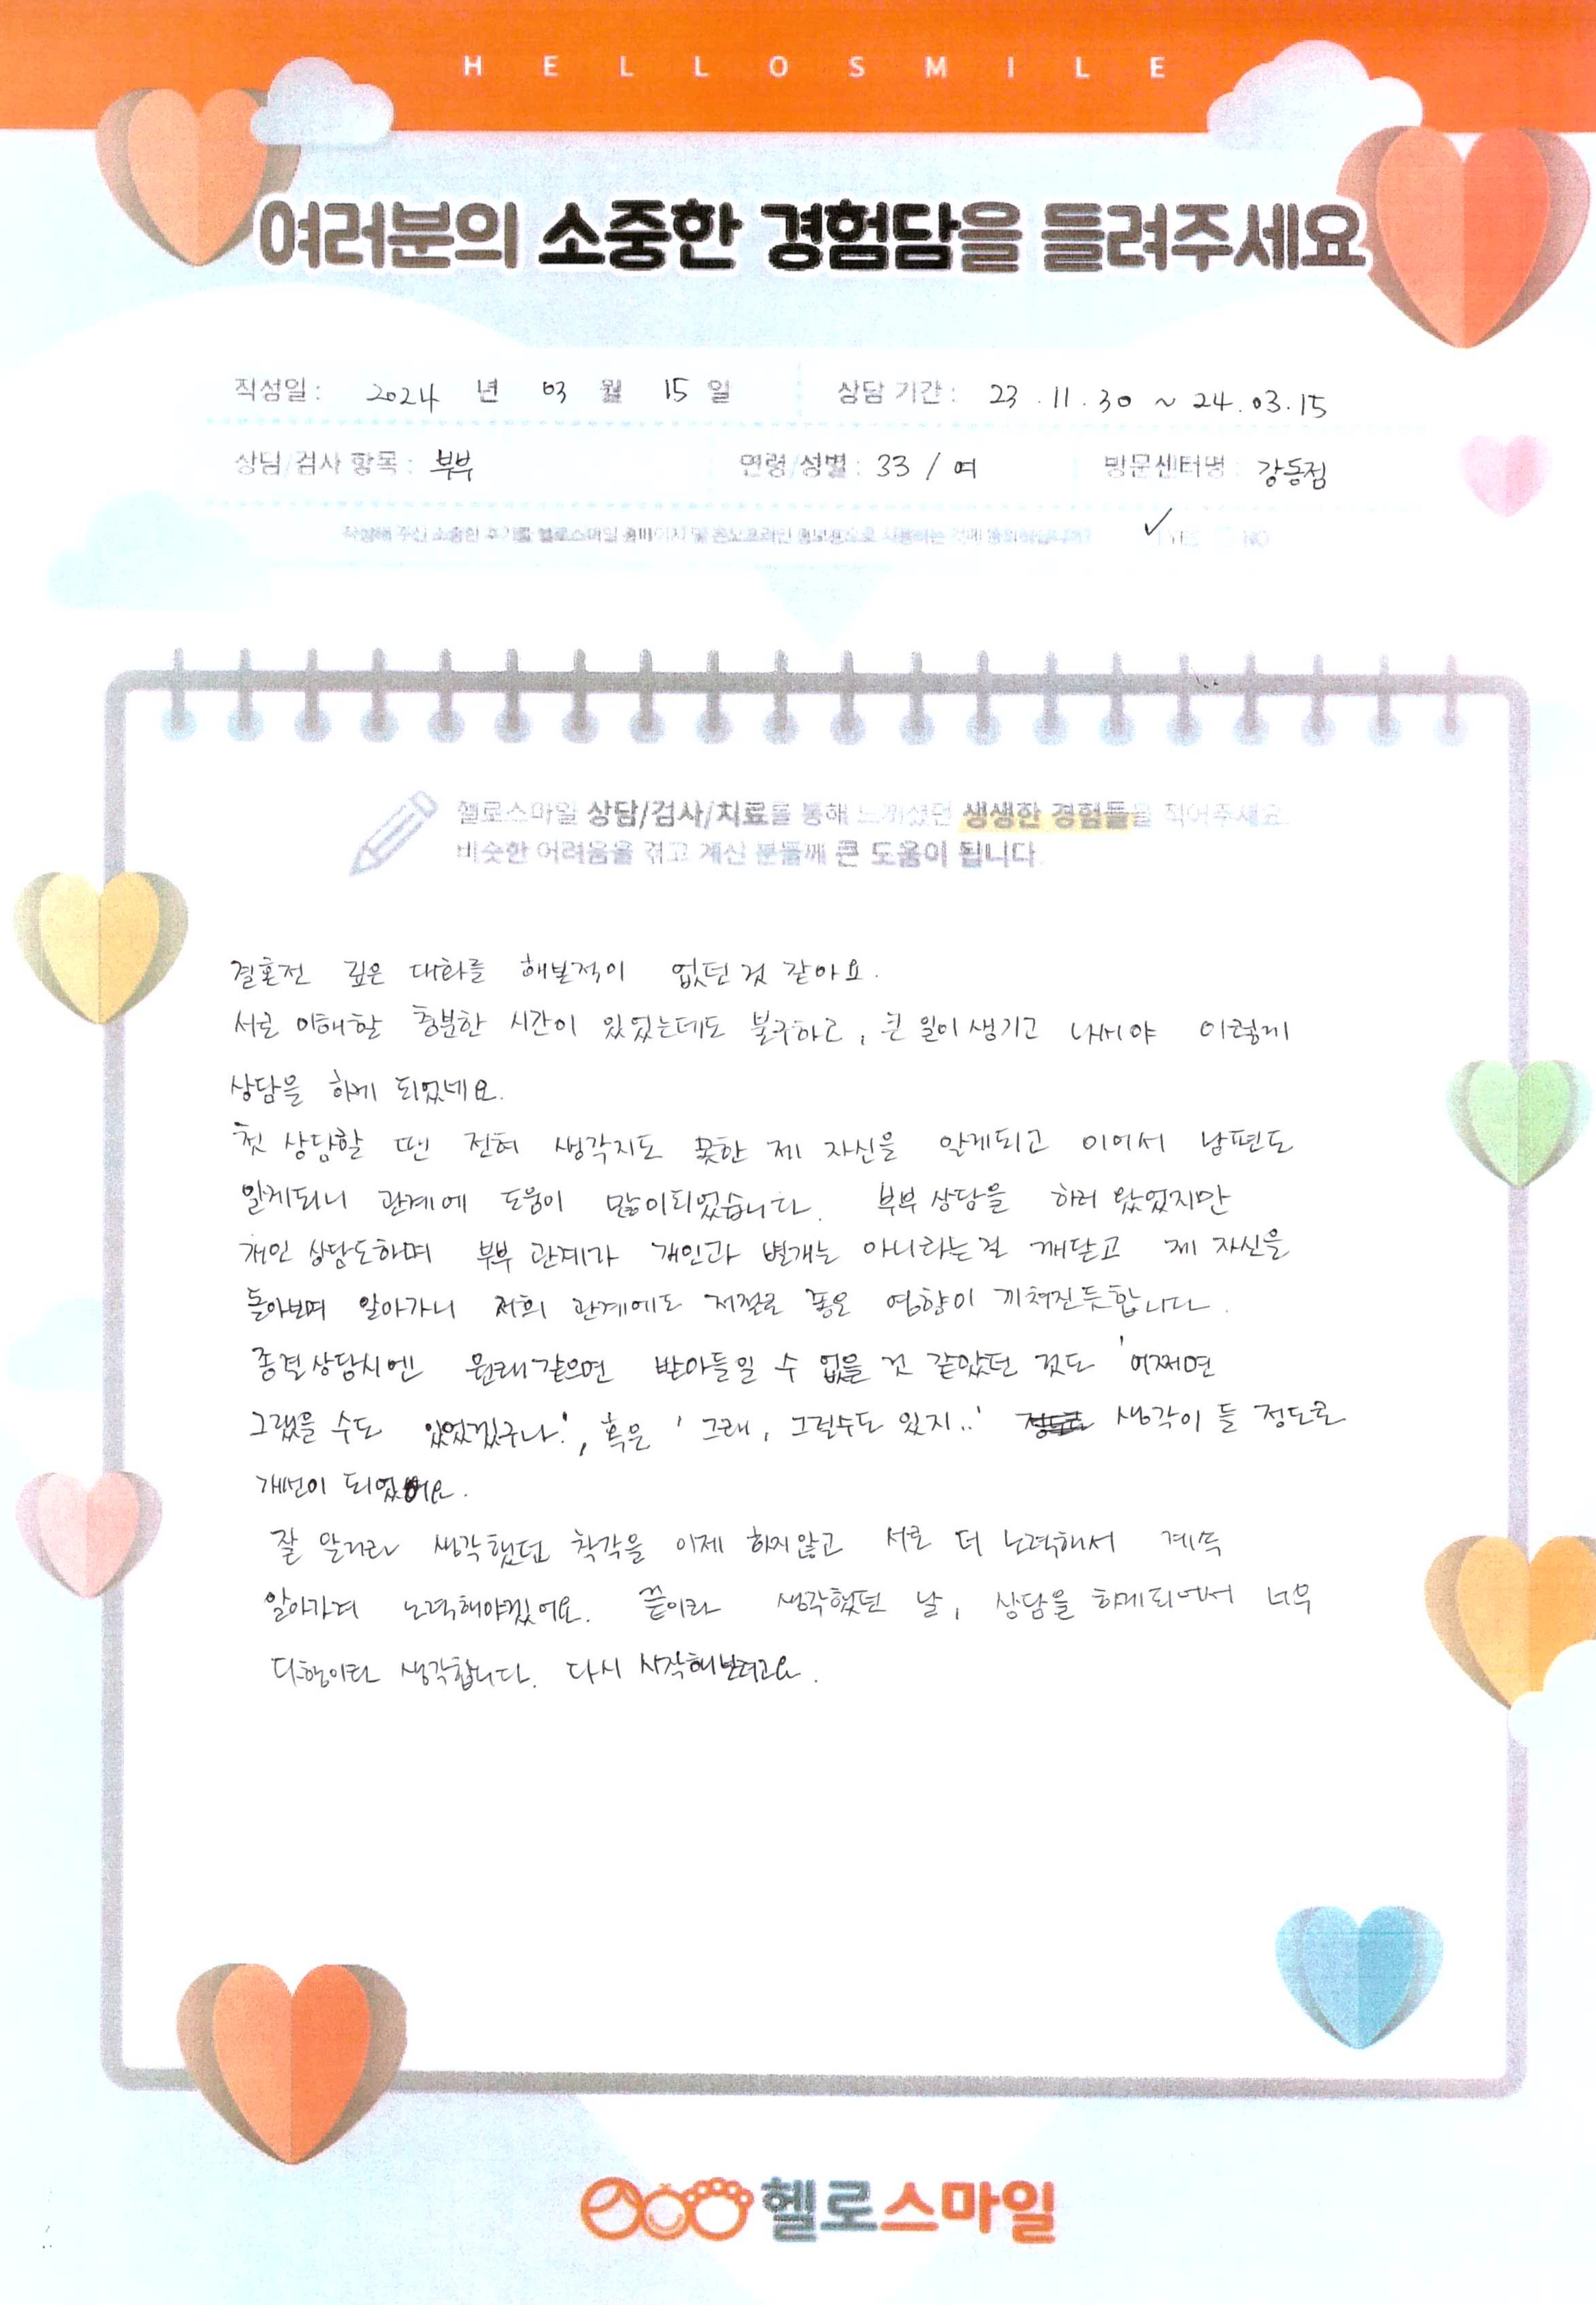 HELLOSMILE
여러분의 소중한 경험담을 들려주세요
작성일 : 2024 년 03 월 15 일 상담 기간 : 23.11.30 ~ 24.03.15
상담/검사 항목 : 부부 연령/성별 : 33 / 여 방문센터명 : 강동점
작성해 주신 소중한 후기를 헬로스마일 홈페이지 및 온오프라인 홍보용으로 사용하는 것에 동의하십니까? ✓ YES NO
헬로스마일 상담/검사/치료를 통해 느끼셨던 생생한 경험들을 적어주세요.
비슷한 어려움을 겪고 계신 분들께 큰 도움이 됩니다.
결혼전 깊은 대화를 해본적이 없던 것 같아요.
서로 이해할 충분한 시간이 있었는데도 불구하고, 큰 일이 생기고 나서야 이렇게
상담을 하게 되었네요.
첫 상담할 땐 전혀 생각지도 못한 제 자신을 알게되고 이어서 남편도
알게되니 관계에 도움이 많이되었습니다. 부부 상담을 하러 왔었지만
개인 상담도하며 부부 관계가 개인과 별개는 아니라는걸 깨닫고 제 자신을
돌아보며 알아가니 저희 관계에도 저절로 좋은 영향이 끼쳐진듯합니다.
종결상담시엔 원래같으면 받아들일 수 없을 것 같았던 것도 '어쩌면
그랬을 수도 있었겠구나.', 혹은 '그래, 그럴수도 있지..' 생각이 들 정도로
개선이 되었어요.
잘 알거라 생각했던 착각을 이제 하지않고 서로 더 노력해서 계속
알아가려 노력해야겠어요. 끝이라 생각했던 날, 상담을 하게되어서 너무
다행이라 생각합니다. 다시 시작해보려고요.
헬로스마일